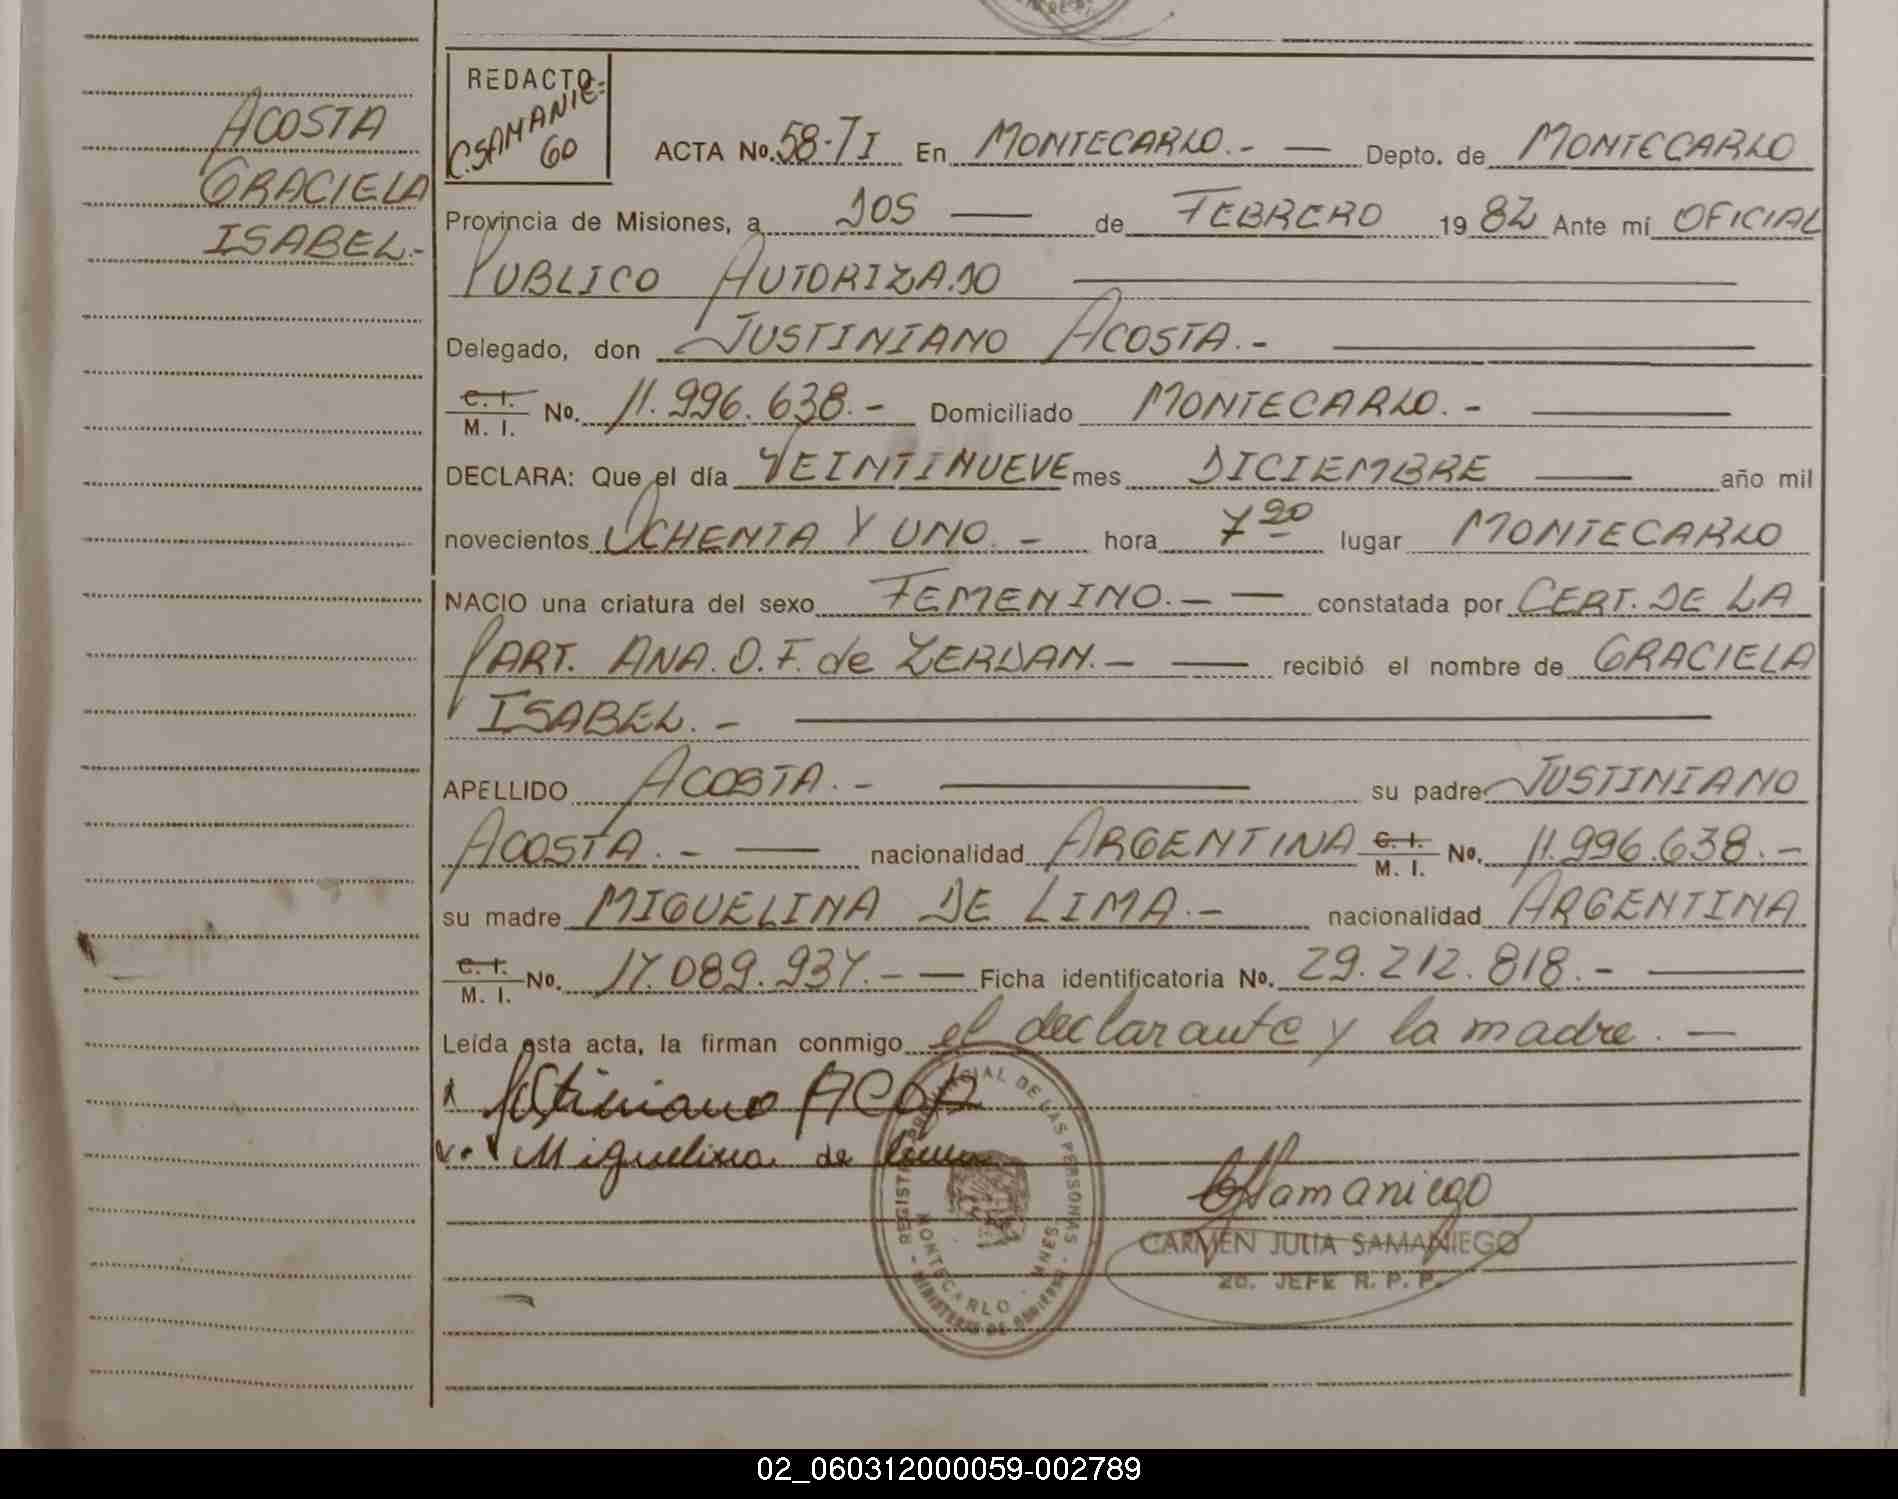 ACOSTA
GRACIELA
ISABEL.-
REDACTO
C.SAMANIE=
GO
ACTA No. 58-TI En MONTECARLO.- — Depto. de MONTECARLO
Provincia de Misiones, a DOS — de FEBRERO 1982 Ante mí OFICIAL
PUBLICO AUTORIZADO
Delegado, don JUSTINIANO ACOSTA.-
C. I.
M. I. No. 11.996.638.- Domiciliado MONTECARLO.-
DECLARA: Que el día VEINTINUEVE mes DICIEMBRE — año mil
novecientos OCHENTA Y UNO.- hora 7 20 lugar MONTECARLO
NACIO una criatura del sexo FEMENINO.- — constatada por CERT. DE LA
PART. ANA. O. F. de ZERDAN.- — recibió el nombre de GRACIELA
ISABEL.-
APELLIDO ACOSTA.- — su padre JUSTINIANO
ACOSTA.- — nacionalidad ARGENTINA C. I.
M. I. No. 11.996.638.-
su madre MIGUELINA DE LIMA.- nacionalidad ARGENTINA
C. I.
M. I. No. 17.089.937.- — Ficha identificatoria No. 29.212.818.- —
Leída esta acta, la firman conmigo el declarante y la madre. —
Miguelina de Lima
REGISTRO PROVINCIAL DE LAS PERSONAS
MONTECARLO - MNES
MINISTERIO DE GOBIERNO
CSamaniego
CARMEN JULIA SAMANIEGO
2o. JEFE R. P. P.
02_060312000059-002789